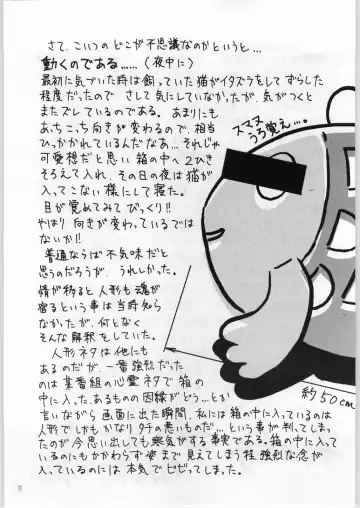 さて、こいつのどこが不思議なのかというと…
動くのである……（夜中に）
最初に気づいた時は飼っていた猫がイタズラをしてずらした
程度だったので さして気にしていなかったが、気がつくと
またズレているのである。あまりにも
あっちこっち向きが変わるので、相当
ひっかかれているんだなあ…それじゃ
可愛想だと思い 箱の中へ2ひき
そろえて入れ、その日の夜は猫が
入ってこない様にして寝た。
目が覚めてみてびっくり!!
やはり 向きが変わっているでは
ないか!!
普通ならば不気味だと
思うのだろうが、うれしかった。
情が移ると人形も魂が
宿るという事は当時知ら
なかったが、何となく
そんな解釈をしていた。
人形ネタは他にも
あるのだが、一番強烈だった
のは某番組の心霊ネタで箱の
中に入ったあるものの因縁がどう…とか
言いながら画面に出た瞬間、私には箱の中に入っているのは
人形で しかもかなりタチの悪いものだ…という事が判ってしまっ
たのが今思い出しても寒気がする事実である。箱の中に入って
いるのにもかかわらず姿まで見えてしまう程 強烈な念が
入っているのには本気でビビってしまった。
スマヌ
うろ覚え…。
約50cm